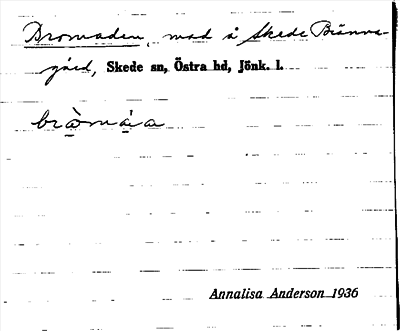 Bromaden, mad å Skede Bränna-
gård, Skede sn, Östra hd, Jönk. l.
bròmáa
Annalisa Anderson 1936